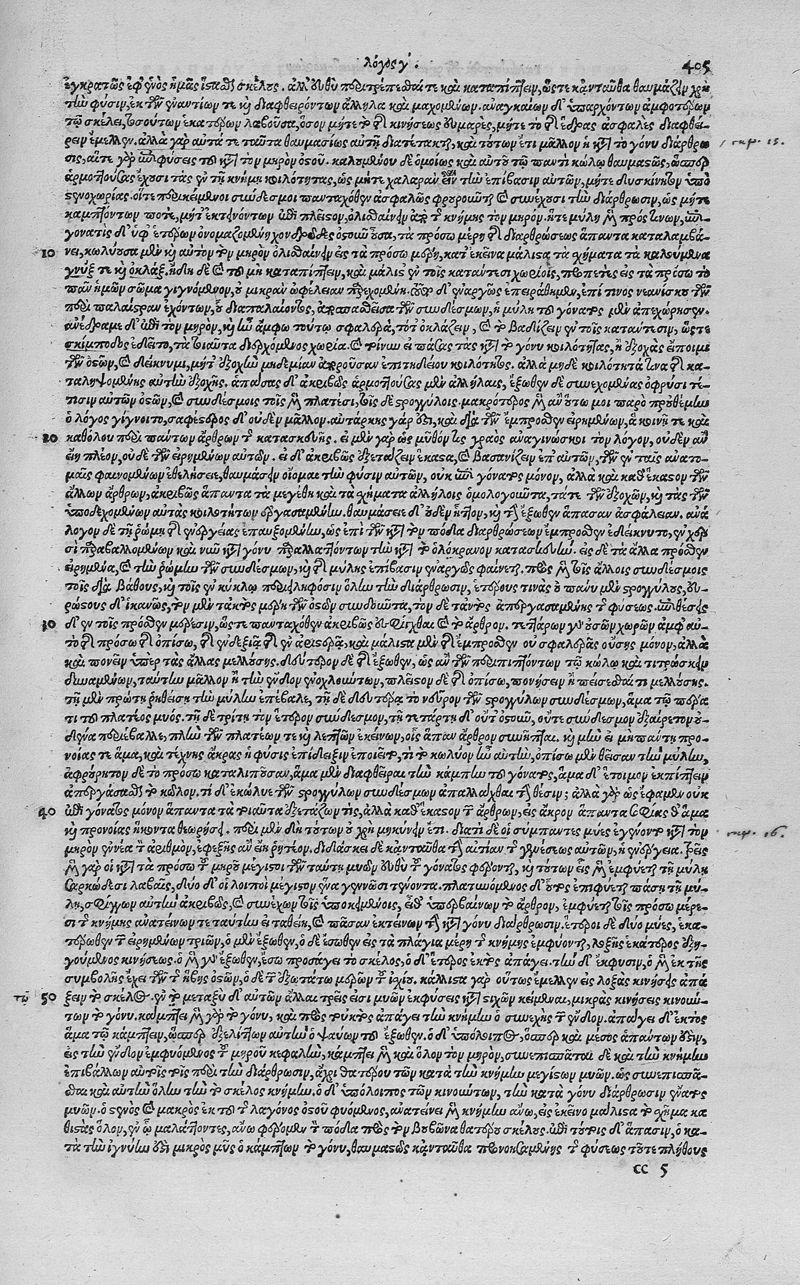 λόγος γ΄. 405
ἐγκρατῶς ἐφ' ἑνὸς ἡμᾶς ἵστασθαι σκέλους. ἀλλ' οὐδὲ περιτρέπεσθαί τε καὶ καταπίπτειν, ὥστε κἀνταῦθα θαυμάζειν χρὴ
τὴν φύσιν, ἐκ τῶν ἐναντίων τε καὶ διαφθειρόντων ἄλληλα καὶ μαχομένων. ἀναγκαίων δ' ὑπαρχόντων ἀμφοτέρων
τῷ σκέλει, τοσούτων ἑκατέρων λαβοῦσα, ὅσον μήτε τὸ τῆς κινήσεως εὐμαρὲς, μήτε τὸ τῆς ἕδρας ἀσφαλὲς διαφθεί-
ρειν ἔμελλεν. ἀλλὰ γὰρ αὐτά τε ταῦτα θαυμασίως αὐτῇ διατέτακται, καὶ τούτων ἔτι μᾶλλον ἡ κατὰ τὸ γόνυ διάρθρω
σις, αἵτε γὰρ ἐπιφύσεις τοῦ κατὰ τὸν μηρὸν ὀστοῦ. καλουμένου δὲ ὁμοίως καὶ αὐτοῦ τῷ παντὶ κώλῳ θαυμαστῶς, ὥσπερ
ἁρμοττούσας ἔχουσι τὰς ἐν τῇ κνήμῃ κοιλότητας, ὡς μήτε χαλαρὰν εἶναι τὴν ἐπίβασιν αὐτῶν, μήτε δυσκίνητον ὑπὸ
στενοχωρίας. οἵτε περικείμενοι σύνδεσμοι πανταχόθεν ἀσφαλῶς φρουροῦσι καὶ συνέχουσι τὴν διάρθρωσιν, ὡς μήτε
καμπτόντων ποτὲ, μήτ' ἐκτεινόντων ἐπὶ πλεῖστον, ὀλισθαίνειν ἀπὸ τῆς κνήμης τὸν μηρὸν. ἥτε μύλη μὲν πρός τινων, ἐπι-
γονατὶς δ' ὑφ' ἑτέρων ὀνομαζομένη χονδρῶδες ὀστοῦν οὖσα, τὰ πρόσω μέρη τῆς διαρθρώσεως ἅπαντα καταλαμβά-
10 νει, κωλύουσα μὲν καὶ αὐτὴ τὸν μηρὸν ὀλισθαίνειν εἰς τὰ πρόσω μέρη, κατ' ἐκεῖνα μάλιστα τὰ σχήματα τὰ καλούμενα
γνὺξ τε καὶ ὀκλὰξ, ἤδη δὲ καὶ τοῦ μὴ καταπίπτειν, καὶ μάλιστ' ἐν τοῖς κατάντεσι χωρίοις, προπετὲς εἰς τὰ πρόσω τὸ
πᾶν ἡμῶν σῶμα γιγνόμενον, οὐ μικρὰν ὠφέλειαν παρεχομένη. ὅπερ δ' ἐναργῶς ἐπειράθημεν, ἐπί τινος νεανίσκου τῶν
περὶ παλαίστραν ἐχόντων, οὗ διαπαλαίοντος, ἀποσπασθεῖσα τῶν συνδέσμων, ἡ μύλη τοῦ γόνατος μὲν ἀπεχώρησεν.
ἀνέδραμε δ' ἐπὶ τὸν μηρὸν, καὶ ἦν ἄμφω τούτῳ σφαλερὰ, τότ' ὀκλάζειν, καὶ τὸ βαδίζειν ἐν τοῖς κατάντεσιν, ὥστε
σκίμποδος ἐδεῖτο, τὰ τοιαῦτα διερχόμενος χωρία.
ταληψομένης αὐτὴν ἐξοχῆς. ἁπάσας δ' ἀκριβῶς ἁρμοττούσας μὲν ἀλλήλαις, ἔξωθεν δὲ συνεχομένας ὀφρύσι τέ-
τισιν αὐτῶν ὀστῶν, καὶ συνδέσμοις τοῖς μὲν πλατέσι, τοῖς δὲ στρογγύλοις. μακρότερος μὲν ἂν οὕτω μοι παρὰ προθεμένῳ
ὁ λόγος γίγνοιτο, σαφέστερος δ' οὐδὲν μᾶλλον. αὐτάρκης γάρ ἐστι, καὶ διὰ τῶν ἔμπροσθεν εἰρημένων, ἃ κοινῇ τε καὶ
20 καθόλου περὶ πάντων ἄρθρων τῆς κατασκευῆς. εἰ μὲν γὰρ ὡς μῦθόν τις γραὸς ἀναγινώσκοι τὸν λόγον, οὐδὲν ἂν
εἴη πλέον, οὐδὲ τῶν εἰρημένων αὐτῷ. εἰ δ' ἀκριβῶς ἐξετάζειν ἕκαστα, καὶ βασανίζειν ἐπ' αὐτῶν, τῶν ἐν ταῖς ἀνατο-
μαῖς φαινομένων ἐθελήσειε, θαυμάσειν οἴομαι τὴν φύσιν αὐτῶν, οὐκ ἐπὶ γόνατος μόνον, ἀλλὰ καὶ καθ' ἕκαστον τῶν
ἄλλων ἄρθρων, ἀκριβῶς ἅπαντα τὰ μεγέθη καὶ τὰ σχήματα ἀλλήλοις ὁμολογοῦντα, τά τε τῶν ἐξοχῶν, καὶ τὰς τῶν
ὑποδεχομένων αὐτὰς κοιλοτήτων ἐργασαμένην. θαυμάσειε δ' οὐδὲν ἧττον, καὶ τὴν ἔξωθεν ἅπασαν ἀσφάλειαν. ἀνά
λογον δὲ τῇ ῥώμῃ τῆς ἐνεργείας ἐπαυξομένην, ὡς ἐπὶ τῶν κατὰ τὸν πόδα διαρθρώσεων ἔμπροσθεν ἐδείκνυτο, ἐν χερ
σὶ παραβαλλομένων καὶ νῦν κατὰ γόνυ παραλλάττοντων τὴν κατὰ τὸ ὀλέκρανον κατασκευήν. εἰς δὲ τὰ ἄλλα πρόσθεν
εἰρημένα, καὶ τὴν ῥώμην τῶν συνδέσμων, καὶ τῆς μύλης ἐπίθεσιν ἐναργῶς φαίνεται. πρὸς μὲν τοῖς ἄλλοις συνδέσμοις
τοῖς διὰ βάθους, καὶ τοῖς ἐν κύκλῳ περιειληφόσιν ὅλην τὴν διάρθρωσιν, ἑτέρους τινὰς οὐ πάνυ μὲν στρογγύλους, εὐ-
ρώστους δ' ἱκανῶς, τὸν μὲν τἀκτὸς μέρη τῶν ὀστῶν συνδοῦντα, τὸν δὲ τἀντὸς ἀπεργασαμένης τῆς φύσεως.
30 δ' ἐν τοῖς πρόσθεν μέρεσιν, ὥστε πανταχόθεν ἀκριβῶς ἐσφίγχθαι τὸ ἄρθρον. τεττάρων γὰρ οὐσῶν χωρῶν ἀμφ' αὐ-
τὸ τῆς πρόσω τῆς ὀπίσω, τῆς ἐν δεξιᾷ τῆς ἐν ἀριστερᾷ, καὶ μάλιστα μὲν τῆς ἔμπροσθεν οὐ σφαλερᾶς οὔσης μόνον, ἀλλὰ
καὶ πονεῖν ὑπὲρ τὰς ἄλλας μελλούσης. δεύτερον δὲ τῆς ἔξωθεν, ὡς ἂν τῶν περιπιπτόντων τῷ κώλῳ καὶ τιτρώσκειν
δυναμένων, ταύτην μᾶλλον ἢ τὴν ἔνδον ἐνοχλούντων, πλεῖστον δὲ τῆς ὀπίσω, πονήσειν ἢ πείσεσθαί τι μελλούσης.
τῇ μὲν πρώτῃ ῥηθείσῃ τὴν μύλην ἐπέβαλε, τῇ δὲ δευτέρᾳ τὸ νεῦρον τῶν στρογγύλων συνδέσμων, ἅμα τῷ πέρα
τι τοῦ πλατέος μυός. τῇ δὲ τρίτῃ τὸν ἕτερον σύνδεσμον, τῇ τετάρτῃ δ' οὔτ' ὀστοῦν, οὔτε σύνδεσμον ἐξαίρετον οὐ-
δένα περιέβαλλε, πλὴν τῶν πλατέων τε καὶ λεπτῶν ἐκείνων, οἷς ἅπαν ἄρθρον συνῆπται. καὶ μὴν εἰ μὴ πάντη προ-
νοίας τε ἅμα, καὶ τέχνης ἄκρας ἡ φύσις ἐπίδειξιν ἐποιεῖτο, τί τὸ κωλῦον ἦν αὐτὴν, ὀπίσω μὲν θεῖσαν τὴν μύλην,
ἀφρούρητον δὲ τὸ πρόσω καταλιποῦσαν, ἅμα μὲν διαφθεῖραι τὴν κάμψιν τοῦ γόνατος, ἅμα δ' ἕτοιμον ἐκπίπτειν
ἀπεργάσασθαι τὸ κῶλον. τί δ' ἐκώλυε τῶν στρογγύλων συνδέσμων ἀπαλλάχθαι τὴν θέσιν; ἀλλὰ γὰρ ὡς ἔφαμεν οὐκ
40 ἐπὶ γόνατος μόνον ἅπαντα τὰ τοιαῦτα ἐξετάζων τις, ἀλλὰ καθ' ἕκαστον τῶν ἄρθρων, εἰς ἄκρον ἅπαντα τέχνης θ' ἅμα
καὶ προνοίας ἥκοντα θεωρήσει. περὶ μὲν δὴ τούτων οὐ χρὴ μηκύνειν ἔτι. διατί δὲ οἱ σύμπαντες μύες ἐγένοντο κατὰ τὸν
μηρὸν ἐννέα τὸν ἀριθμὸν, ἐφεξῆς ἂν εἴη ῥητέον. διδάσκει δὲ κἀνταῦθα τὴν αἰτίαν τῆς γενέσεως αὐτῶν, ἡ ἐνέργεια. τρεῖς
μὲν γὰρ οἱ κατὰ τὰ πρόσω τοῦ μηροῦ μέγιστοι τῶν ταύτῃ μυῶν εὐθὺ τοῦ γόνατος φέρονται, καὶ τούτων εἷς μὲν ἐμφύεται τῇ μύλῃ
σαρκώδεσι λαβαῖς, δύο δ' οἱ λοιποὶ μέγιστον ἕνα γεννῶσι τένοντα. πλατυνόμενος δ' οὗτος ἐπιφύεται πάσῃ τῇ μύ-
λῃ, σφίγγων αὐτὴν ἀκριβῶς, καὶ συνέχων τοῖς ὑποκειμένοις, εἶθ' ὑπερβαίνων τὸ ἄρθρον, ἐμφύεται τοῖς πρόσω μέρε-
σι τῆς κνήμης ἀνατείνων τε ταύτην εἰ ταθείη, καὶ πᾶσαν ἐκτείνων τὴν κατὰ γόνυ διάρθρωσιν. ἕτεροι δὲ δύο μύες, ἑκα-
τέρωθεν τῶν εἰρημένων τριῶν, ὁ μὲν ἔξωθεν, ὁ δὲ ἔσωθεν εἰς τὰ πλάγια μέρη τῆς κνήμης ἐμφύονται, λοξῆς ἑκάτερος ἐξη-
γούμενος κινήσεως. ὁ μὲν γὰρ ἔξωθεν, ἔσω προσάγει τὸ σκέλος, ὁ δ' ἕτερος ἐκτὸς ἀπάγει. τὴν δ' ἔκφυσιν, ὁ μὲν ἐκ τῆς
συμβολῆς ἔχει τῶν τῆς ἥβης ὀστῶν, ὁ δὲ τῶν ἐξωτάτω μερῶν τοῦ ἰσχίου. κάλλιστα γὰρ οὕτως ἔμελλον εἰς λοξὰς κινήσεις ἀπά
50 ξειν τὸ σκέλος. ἐν τῷ μεταξὺ δ' αὐτῶν ἄλλαι τρεῖς εἰσι μυῶν ἐκφύσεις κατὰ στίχον κείμεναι, μικρὰς κινήσεις κινούν-
των τὸ γόνυ. κάμπτει μὲν γὰρ τὸ γόνυ, καὶ πρὸς τοὐκτὸς ἀπάγει τὴν κνήμην ὁ συνεχὴς τῷ ἔνδον. ἀπάγει δ' ἐκτὸς
ἅμα τῷ κάμπτειν, ὥσπερ ἐξελίττων αὐτὴν ὁ ψαύων τοῦ ἔξωθεν. ὁ δ' ὑπόλοιπος, ὥσπερ καὶ μέσος ἁπάντων ἐστὶν,
εἰς τὴν ἔνδον ἐμφυόμενος τοῦ μηροῦ κεφαλὴν, κάμπτει μὲν καὶ ὅλον τὸν μηρὸν, συνεπισπᾶται δὲ καὶ τὴν κνήμην
ἐπιβάλλων αὐτὸς τοῖς περὶ τὴν διάρθρωσιν, ἄχρι θατέρου τῶν κατὰ τὴν κνήμην μεγίστων μυῶν. ὡς συνεπισπᾶ-
σθαι καὶ αὐτὴν ὅλην τὴν τὸ σκέλος κνήμην. ὁ δ' ὑπόλοιπος τῶν κινούντων, τὴν κατὰ γόνυ διάρθρωσιν ἔνατος
μυῶν. ὁ στενὸς καὶ μακρὸς ἐκ τοῦ τῆς λαγόνος ὀστοῦ φυόμενος, ἀνατείνει μὲν κνήμην ἄνω, εἰς ἐκεῖνο μάλιστα τὸ σχῆμα κα
θιστὰς ὅλον, ἐν ᾧ μαλάττοντες, ἄνω φέρομεν τὸν πόδα πρὸς τὸν βουβῶνα θατέρου σκέλους. ἐπὶ τούτοις δ' ἅπασιν, ὁ κα-
τὰ τὴν ἰγνύην ἐστὶ μικρὸς μῦς ὁ κάμπτων τὸ γόνυ, θαυμαστῶς κἀνταῦθα προνοησαμένης τῆς φύσεως τοῦ τε πλήθους
CC 5